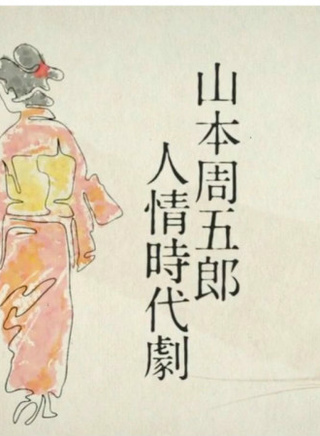 山本周五郎
人情時代劇